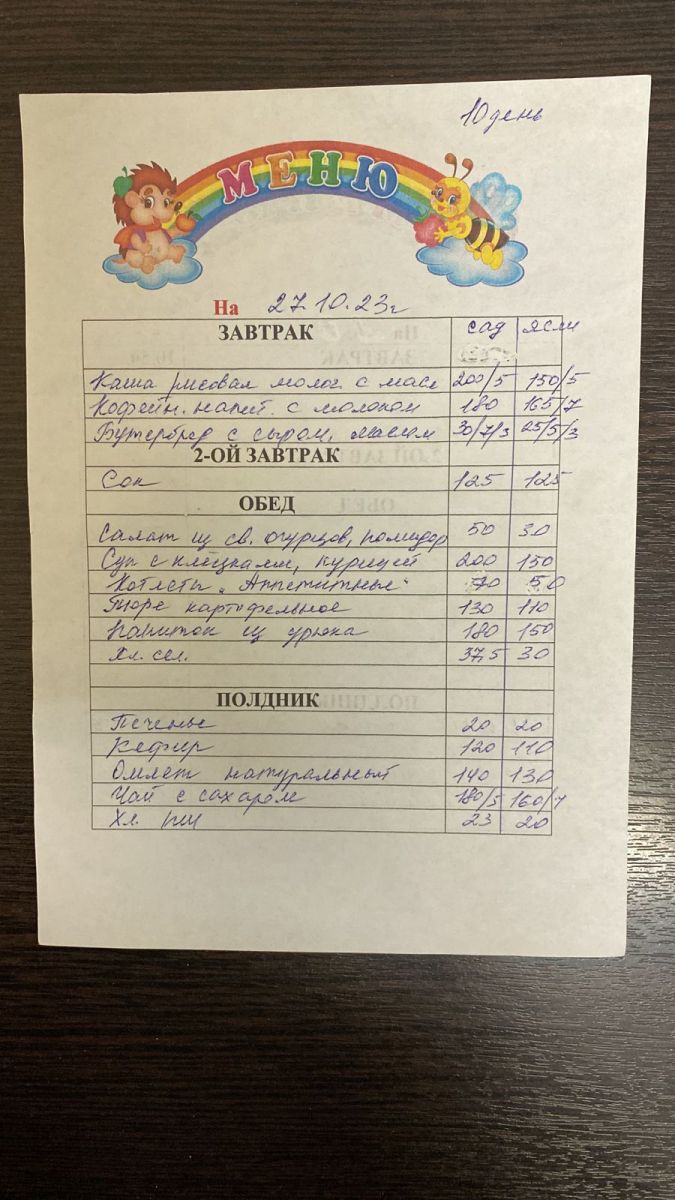 10 день
МЕНЮ
На 27.10.23г
ЗАВТРАК сад ясли
Каша рисовая молоч. с масл 200/5 150/5
Кофейн. напит. с молоком 180 165/7
Бутерброд с сыром, маслом 30/7/3 25/5/3
2-ОЙ ЗАВТРАК
Сок 125 125
ОБЕД
Салат из св. огурцов, помидор 50 30
Суп с клецками, курицей 200 150
Котлеты "Аппетитные" 70 50
Пюре картофельное 130 110
Напиток из урюка 180 150
Хл. сел. 37,5 30
ПОЛДНИК
Печенье 20 20
Кефир 120 110
Омлет натуральный 140 130
Чай с сахаром 180/5 160/7
Хл. пш 23 20